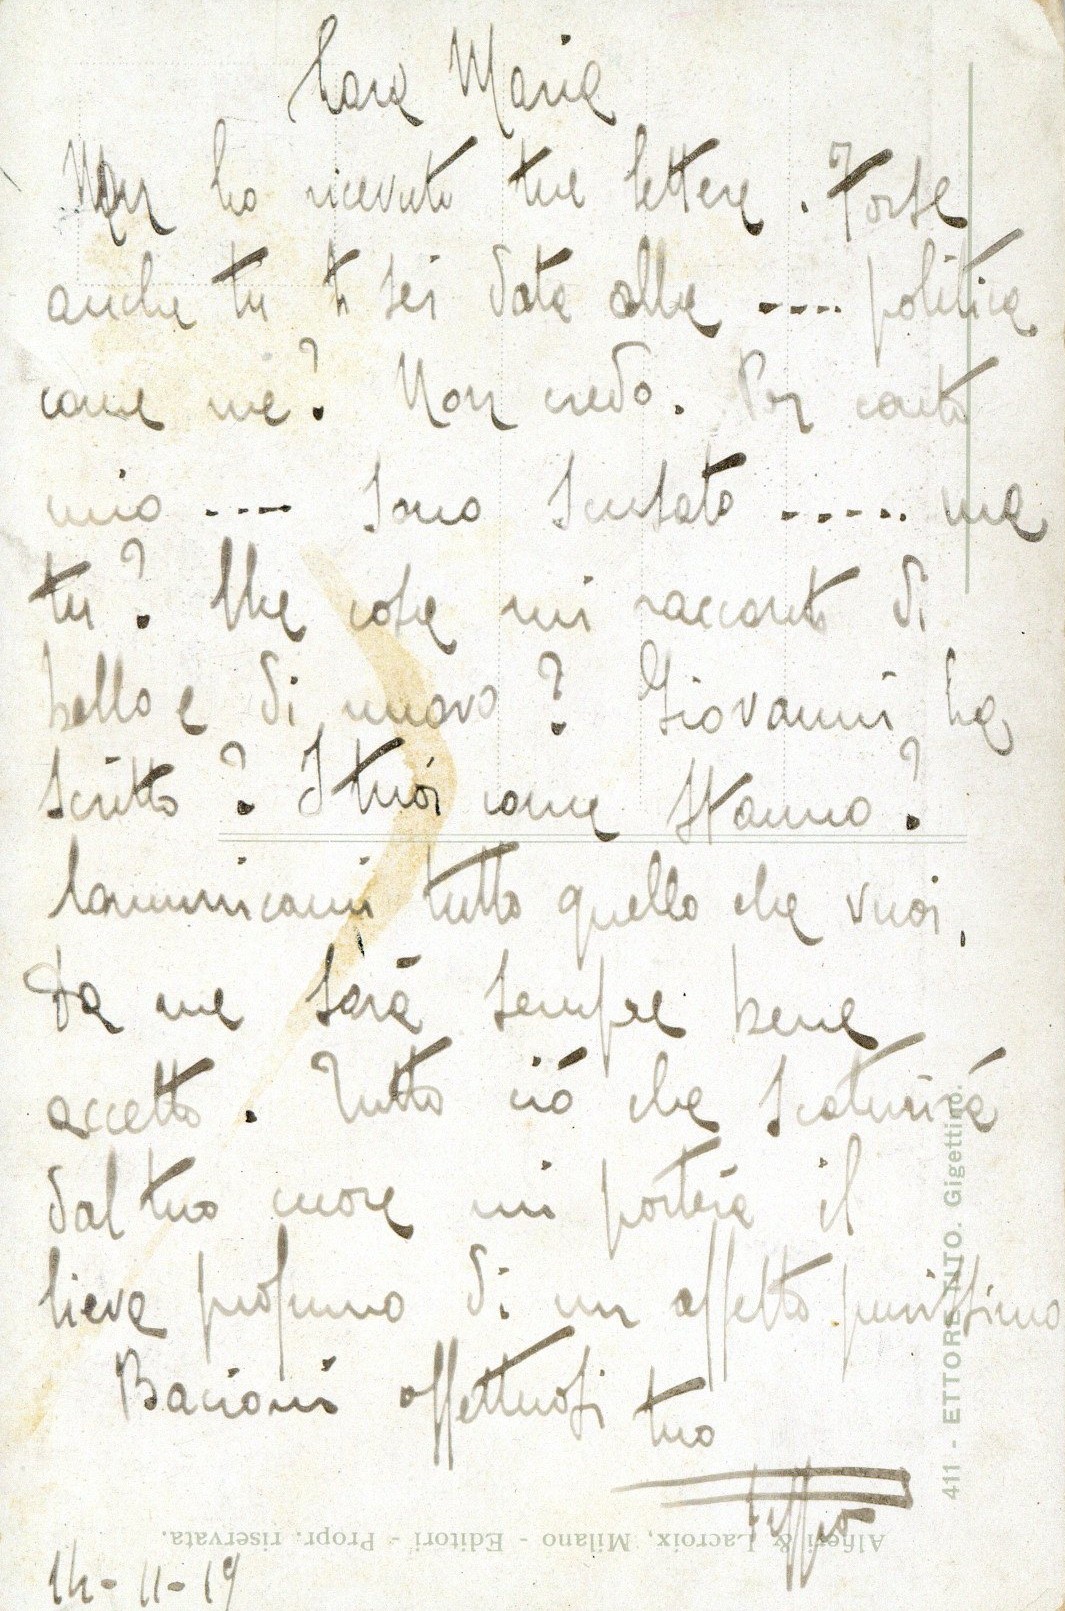 Cara Maria
Non ho ricevuto tue lettere. Forse
anche tu ti sei data alla .... politica
come me? Non credo. Per conto
mio .... sono scusato ..... ma
tu? Che cosa mi racconti di
bello e di nuovo? Giovanni ha
scritto? I tuoi come stanno?
Comunicami tutto quello che vuoi,
Da me sarà sempre bene
accetto. Tutto ciò che scaturirà
dal tuo cuore mi porterà il
lieve profumo di un affetto purissimo
Bacioni affettuosi tuo
14-11-19
Alfieri & Lacroix, Milano - Editori - Propr. riservata.
411 - ETTORE TITO. Gigettino.